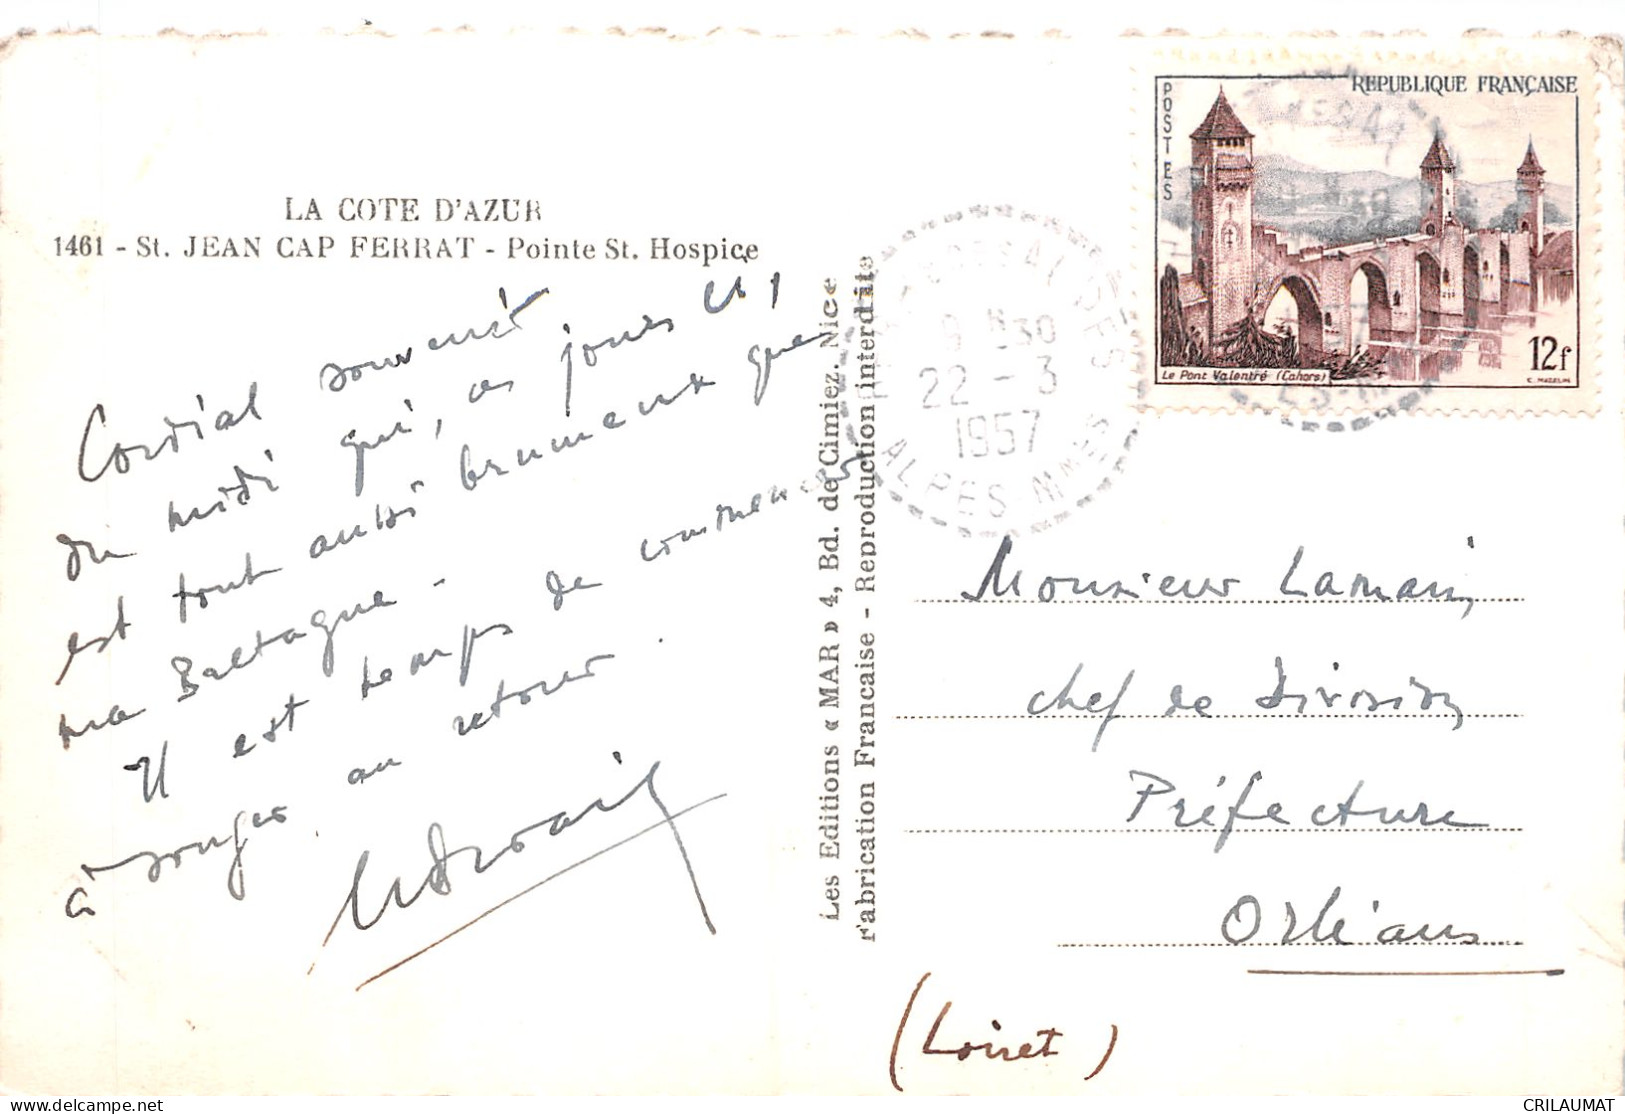 LA COTE D'AZUR
1461 - St. JEAN CAP FERRAT - Pointe St. Hospice
Cordial souvenir
du midi qui, ces jours ci,
est tout aussi brumeux que
ma Bretagne -
Il est temps de commencer
à songer au retour.
Les Editions « MAR » 4, Bd. de Cimiez. Nice
Fabrication Francaise - Reproduction interdite
9 H30
22 - 3
1957
ALPES-Mmes
REPUBLIQUE FRANÇAISE
POSTES
12f
Le Pont Valentré (Cahors)
C. MAZELIN
Monsieur Lamain
chef de Division
Préfecture
Orléans
(Loiret)
CRILAUMAT